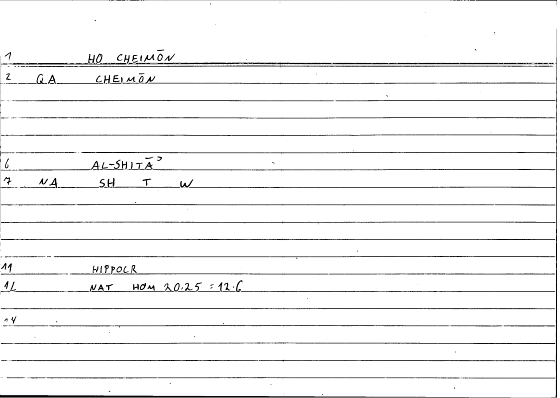 1 HO CHEIMŌN
2 QA CHEIMŌN
6 AL-SHITĀʾ
7 NA SH T W
11 HIPPOCR
12 NAT HOM 20.25 = 12.6
14